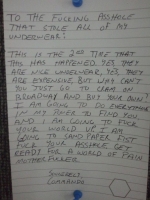 TO THE FUCKING ASSHOLE
THAT STOLE ALL OF MY
UNDERWEAR!
THIS IS THE 2ND TIME THAT
THIS HAS HAPPENED. YES THEY
ARE NICE UNDERWEAR, YES THEY
ARE EXPENSIVE, BUT WHY CAN'T
YOU JUST GO TO
BROADWAY AND BUY YOUR OWN?
I AM GOING TO DO EVERYTHING
IN MY POWER TO FIND YOU
AND I AM GOING TO FUCK
YOUR WORLD UP. I AM
GOING TO SAND PAPER FIST
FUCK YOUR ASSHOLE. GET
READY FOR A WORLD OF PAIN
MOTHERFUCKER.
SINCERELY,
COMMANDO